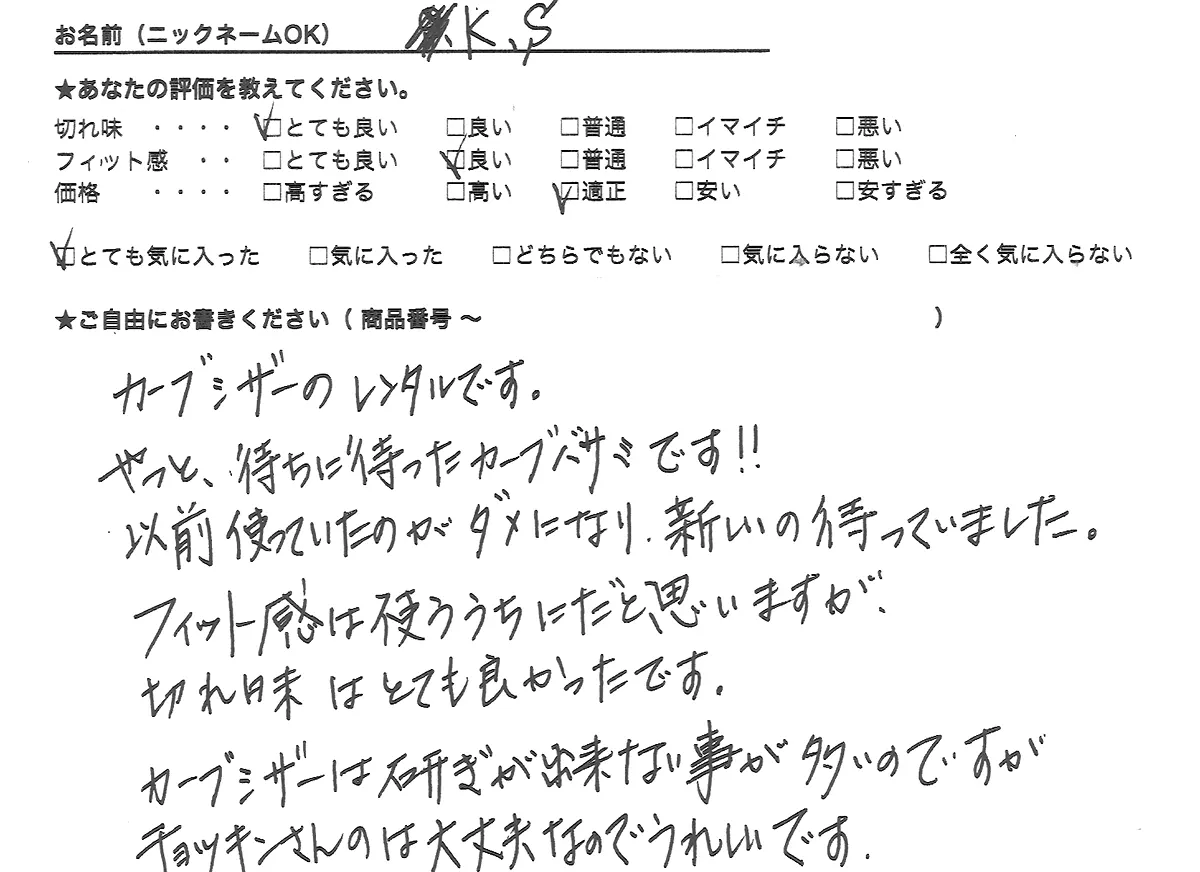 お名前（ニックネームOK） K.S
★あなたの評価を教えてください。
切れ味 ・・・・ ☑とても良い □良い □普通 □イマイチ □悪い
フィット感 ・・ □とても良い ☑良い □普通 □イマイチ □悪い
価格 ・・・・ □高すぎる □高い ☑適正 □安い □安すぎる
☑とても気に入った □気に入った □どちらでもない □気に入らない □全く気に入らない
★ご自由にお書きください（ 商品番号 〜 ）
カーブシザーのレンタルです。
やっと、待ちに待ったカーブバサミです!!
以前使っていたのがダメになり、新しいの待っていました。
フィット感は使ううちにだと思いますが、
切れ味はとても良かったです。
カーブシザーは研ぎが出来ない事が多いのですが
チョッキンさんのは大丈夫なのでうれしいです.